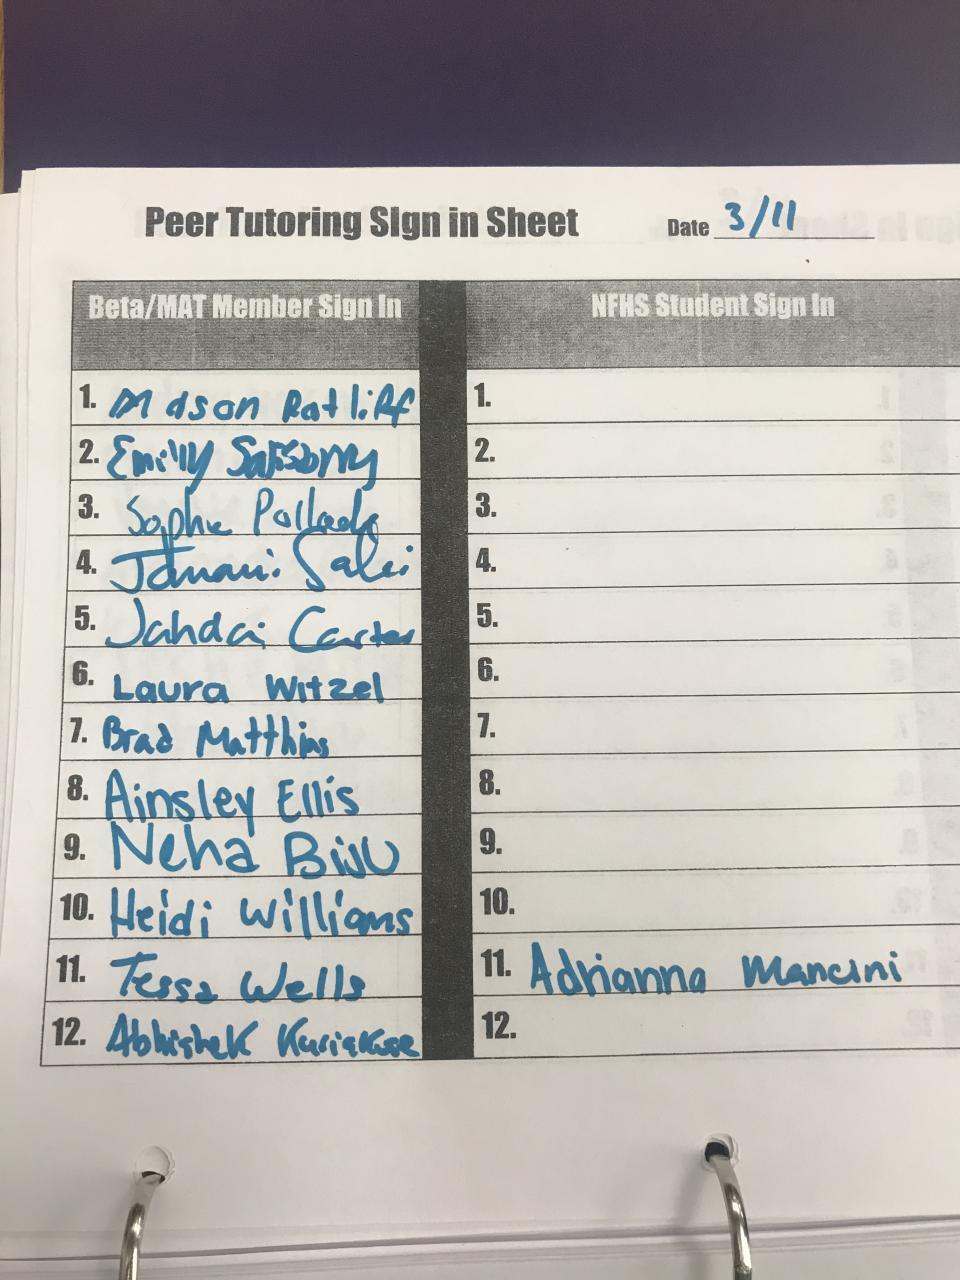 Peer Tutoring Sign in Sheet Date 3/11
Beta/MAT Member Sign In NFHS Student Sign In
1. Madson Ratliff 1.
2. Emilly Salisbury 2.
3. Sophie Pollack 3.
4. Janani Salei 4.
5. Jahdai Carter 5.
6. Laura Witzel 6.
7. Brad Matthias 7.
8. Ainsley Ellis 8.
9. Neha Biju 9.
10. Heidi Williams 10.
11. Tessa Wells 11. Adrianna Mancini
12. Abhishek Kuriakose 12.